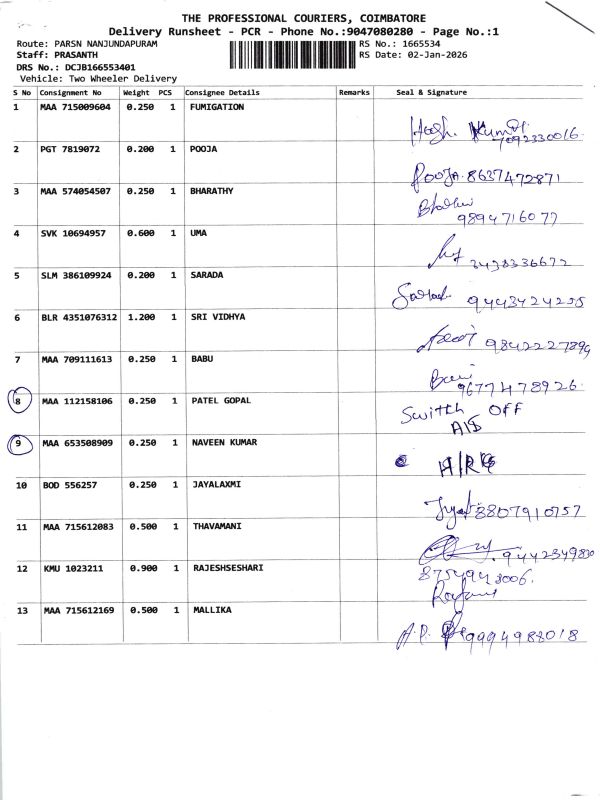 THE PROFESSIONAL COURIERS, COIMBATORE
Delivery Runsheet - PCR - Phone No.:9047080280 - Page No.:1
Route: PARSN NANJUNDAPURAM RS No.: 1665534
Staff: PRASANTH RS Date: 02-Jan-2026
DRS No.: DCJB166553401
Vehicle: Two Wheeler Delivery
S No Consignment No Weight PCS Consignee Details Remarks Seal & Signature
1 MAA 715009604 0.250 1 FUMIGATION
7092330016.
2 PGT 7819072 0.200 1 POOJA
Pooja 8637472871
3 MAA 574054507 0.250 1 BHARATHY
9894716077
4 SVK 10694957 0.600 1 UMA
5 SLM 386109924 0.200 1 SARADA
6 BLR 4351076312 1.200 1 SRI VIDHYA
7 MAA 709111613 0.250 1 BABU
9677478926.
8 MAA 112158106 0.250 1 PATEL GOPAL
Switch OFF
9 MAA 653508909 0.250 1 NAVEEN KUMAR
10 BOD 556257 0.250 1 JAYALAXMI
8807910757
11 MAA 715612083 0.500 1 THAVAMANI
12 KMU 1023211 0.900 1 RAJESHSESHARI
13 MAA 715612169 0.500 1 MALLIKA
9994988018